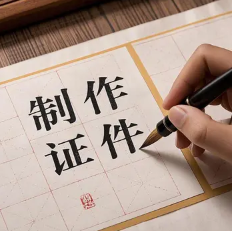 制作
证件